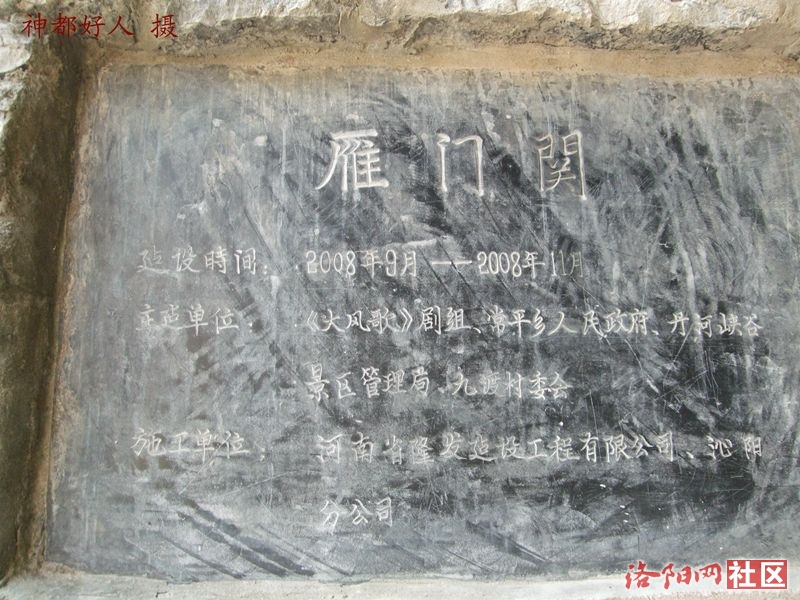 神都好人 摄
雁门関
建设时间：2008年9月——2008年11月
主建单位：《大风歌》剧组、常平乡人民政府、丹河峡谷
景区管理局、九渡村委会
施工单位：河南省隆发建设工程有限公司、沁阳
分公司
洛阳网社区